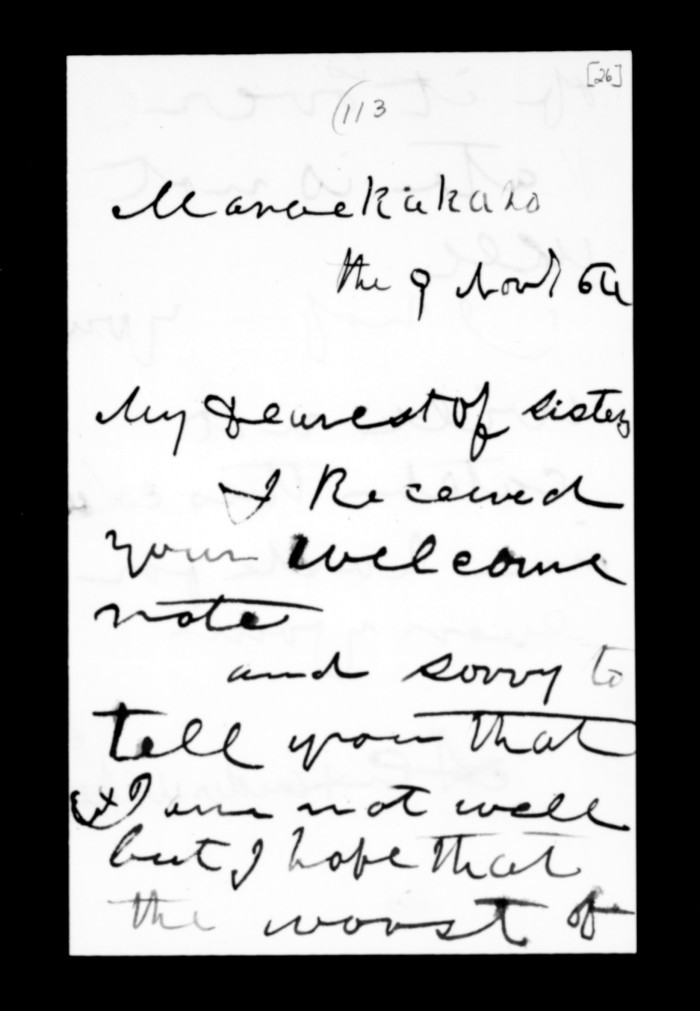 [26]
(113
Maraekakaho
the 9 Novr
My Dearest of sister
I Received
your welcome
note
and sorry to
tell you that
I am not well
but I hope that
the worst of